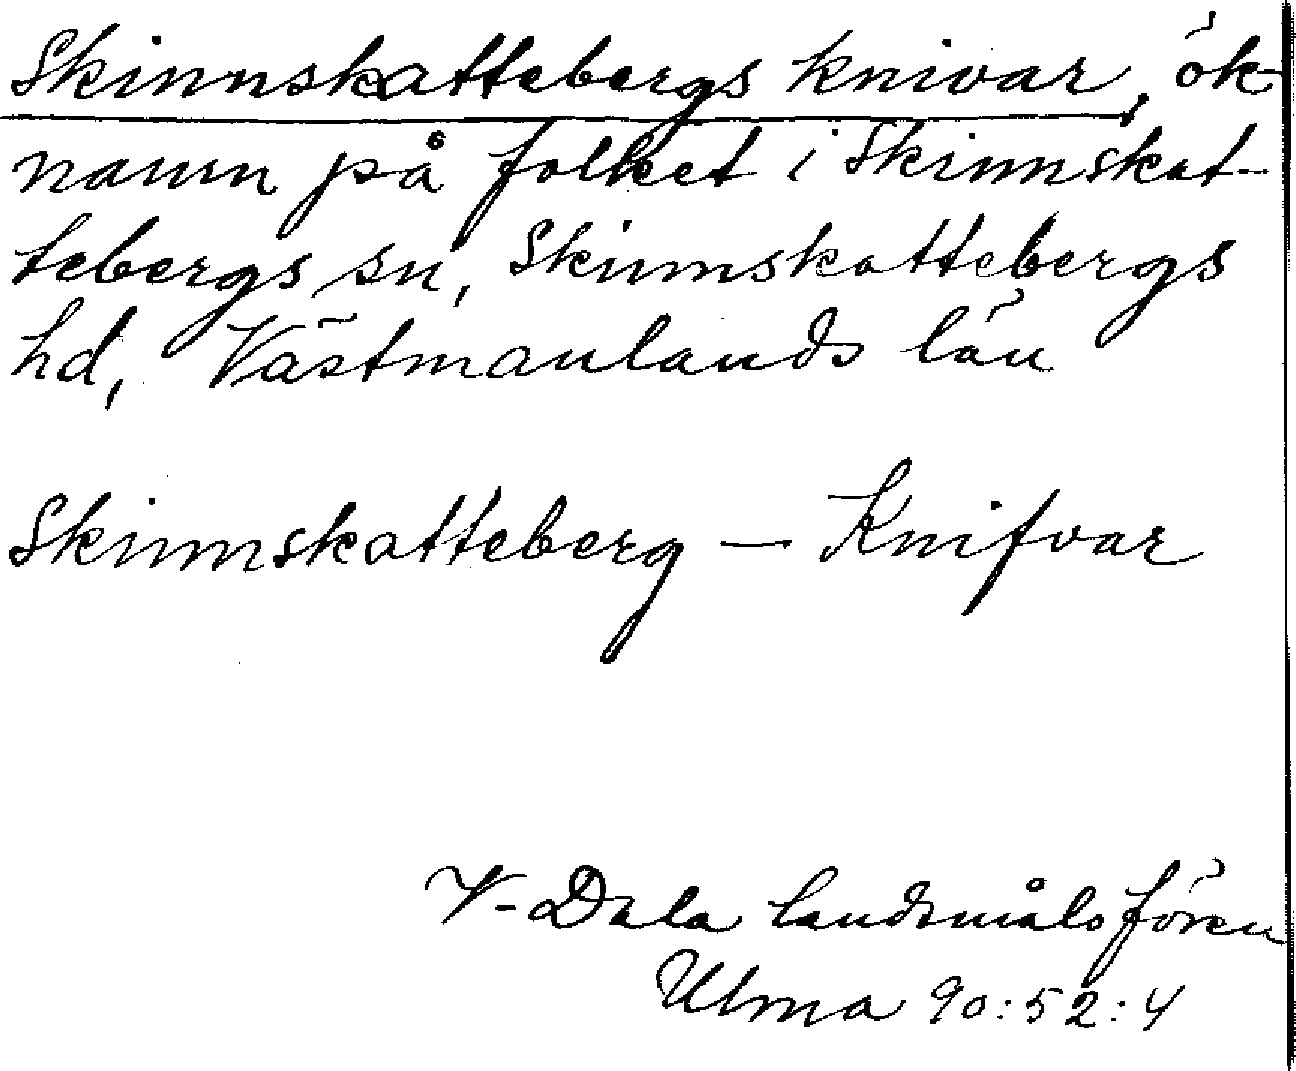 Skinnskattebergs knivar, ök-
namn på folket i Skinnskat-
tebergs sn, Skinnskattebergs
hd, Västmanlands län
Skinnskatteberg – Knifvar
V-Dala landsmålsfören
Ulma 90:52:4